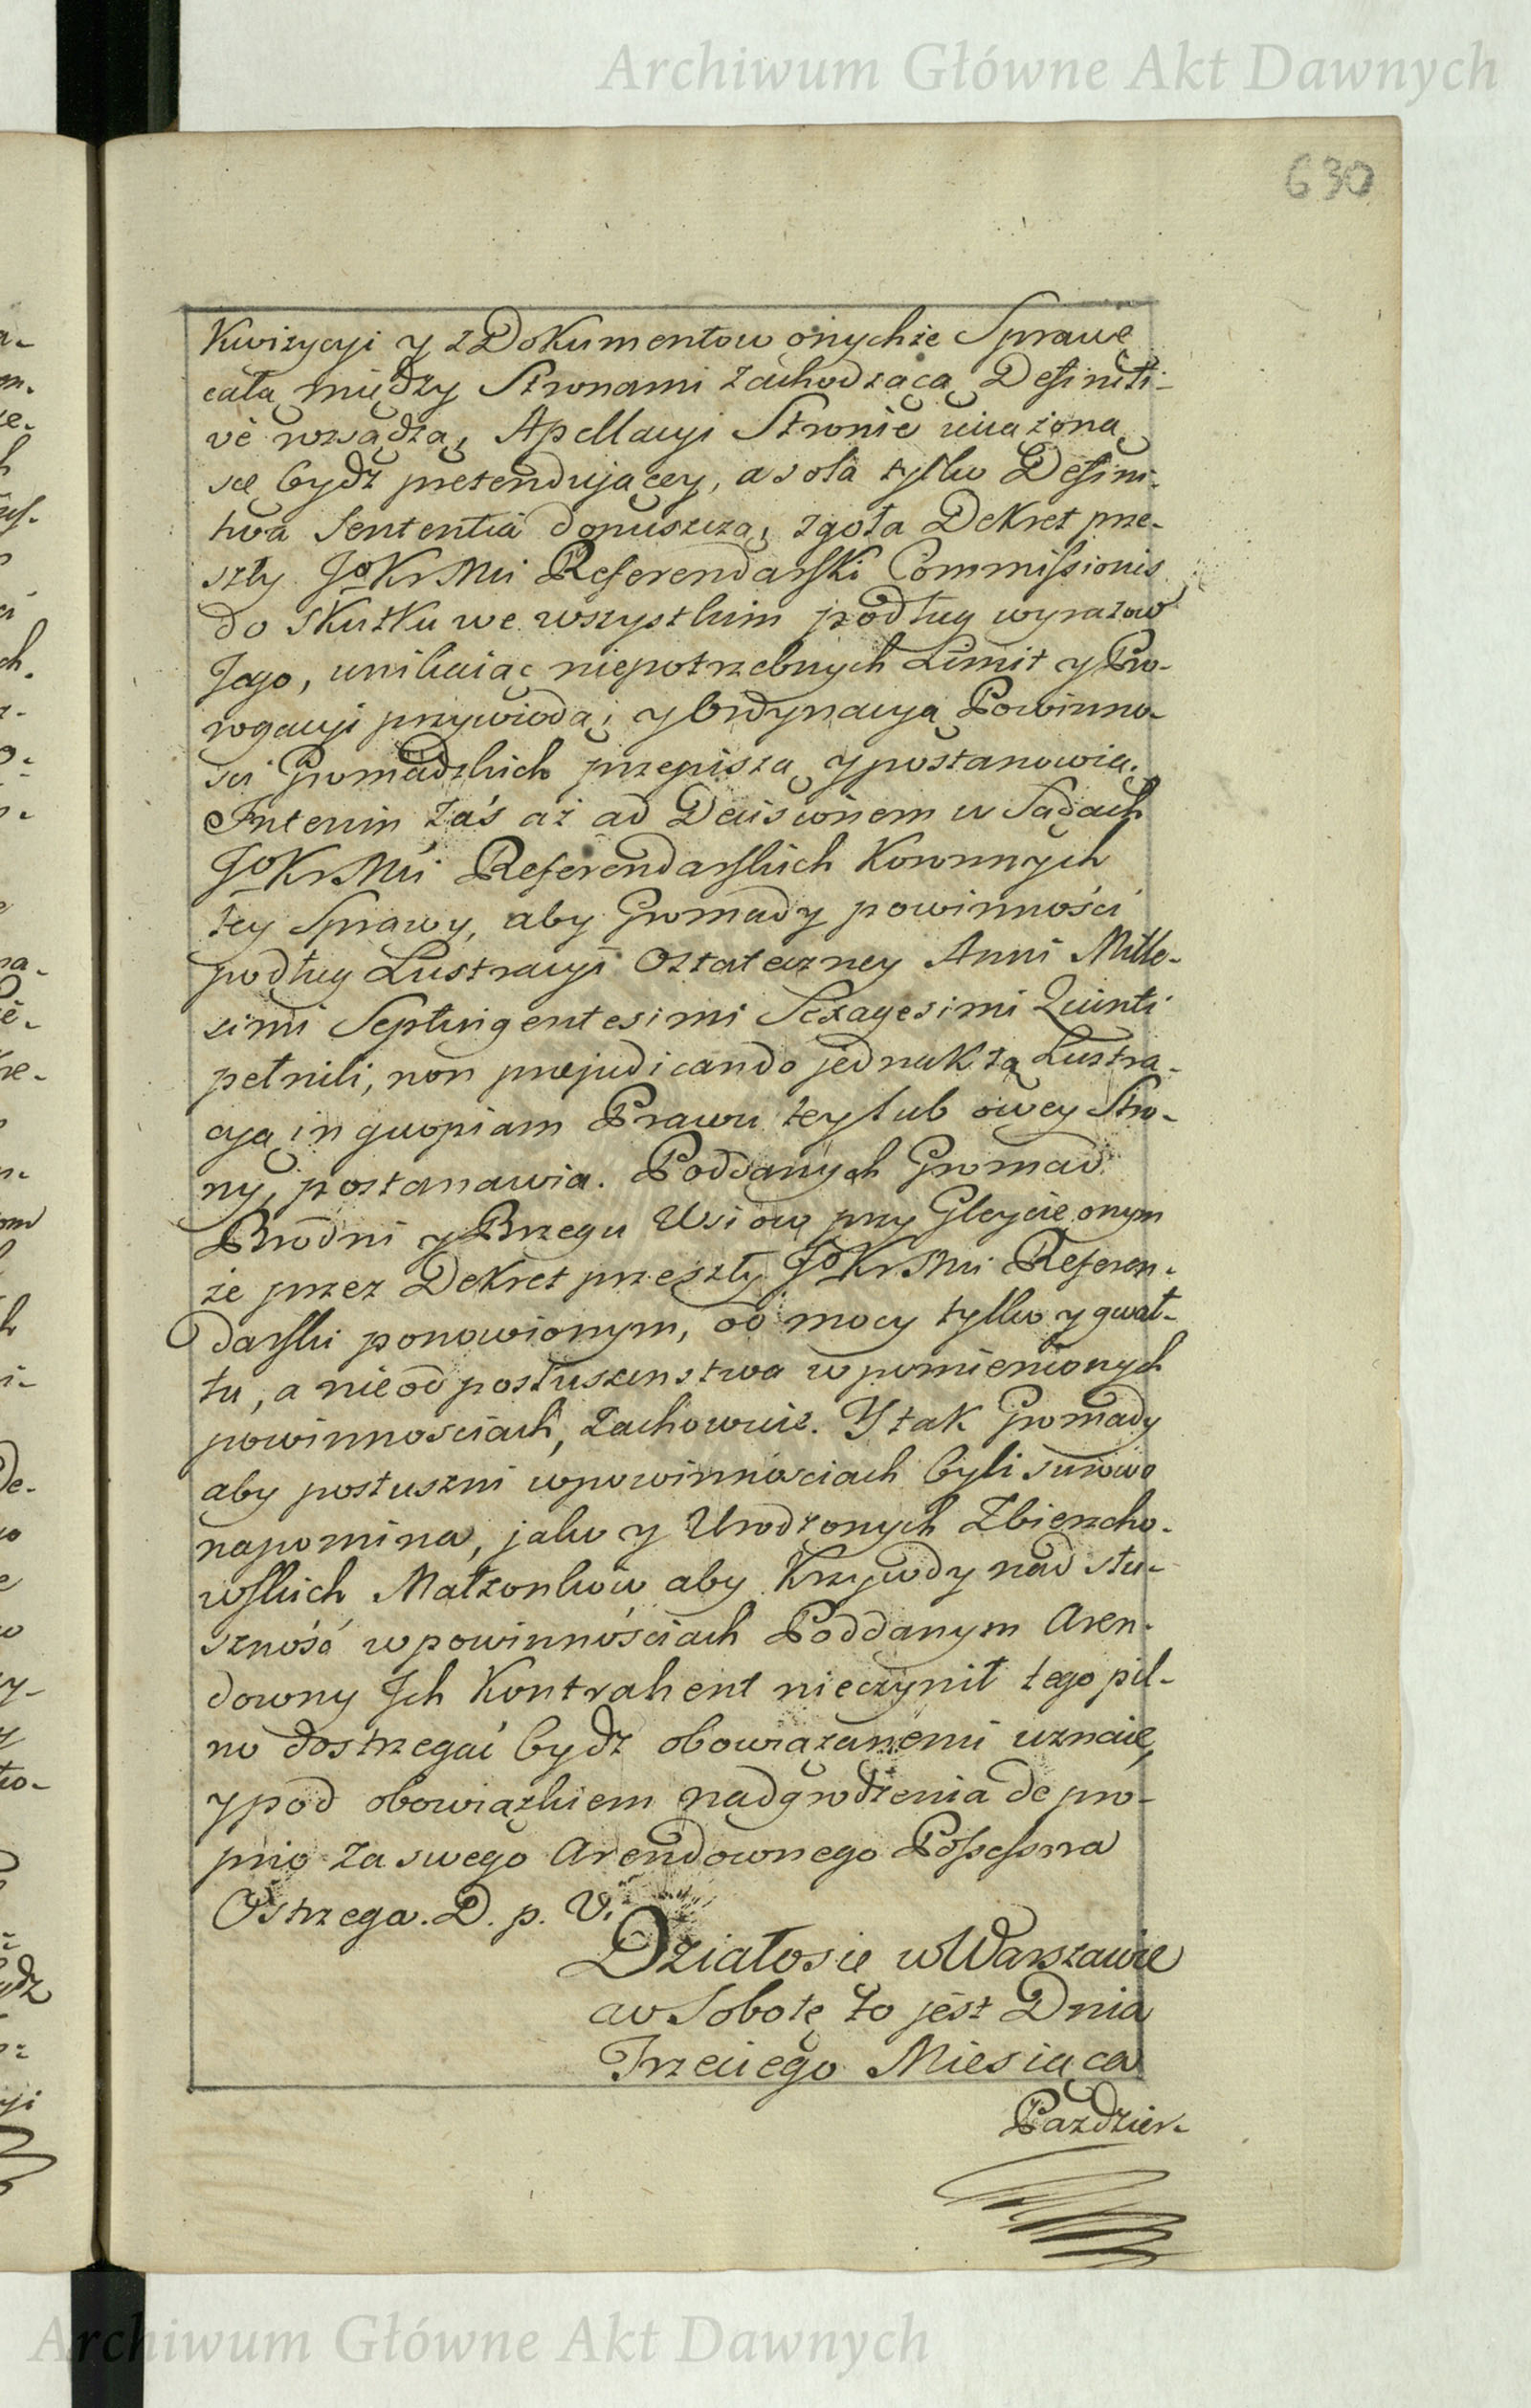 Archiwum Główne Akt Dawnych
630
Kwizycyi y z Dokumentow onychże Sprawę
całą między Stronami zachodzącą Definiti-
vè rozsądzą, Apellacyi Stronie uciążoną
się bydź pretendującey, a sola tylko Defini-
tiva Sententia dopuszczą, zgoła Dekret prze-
szły JoKrMci Referendarski Commissionis
do skutku we wszystkim podług wyrazow
Jego, unikaiąc niepotrzebnych Limit y Pro-
rogacyi przywiodą; y Ordynacyą Powinno-
sci Gromadzkich przepiszą y postanowią.
Interim zaś aż ad Decisionem w Sądach
JoKrMci Referendarskich Koronnych
tey Sprawy, aby Gromady powinności
podług Lustracyi Ostateczney Anni Mille-
simi Septingentesimi Sexagesimi Quinti
pełnili, non praejudicando jednak tą Lustra-
cyą in quopiam Prawu tey lub owey Stro-
ny, postanawia. Poddanych Gromad
Brodni y Brzegu Wsiow przy Gleycie onym
że przez Dekret przeszły JoKrMci Referen-
darski ponowionym, od mocy tylko y gwał-
tu, a nie od posłuszenstwa w pomienionych
powinnosciach, zachowuie. Y tak Gromady
aby posłuszni w powinnosciach byli surowo
napomina, jako y Urodzonych Zbiercho-
wskich Małzonkow aby Krzywdy nad słu-
szność w powinnościach Poddanym Aren-
downy Jch Kontrahent nieczynił tego pil-
no dostrzegać bydź obowiązanemi uznaie,
y pod obowiązkiem nadgrodzenia de pro-
prio za swego Arendownego Possessora
Ostrzega. D. p. V.
Działo sie w Warszawie
w Sobotę to jest Dnia
Trzeciego Miesiąca
Pazdzier-
Archiwum Główne Akt Dawnych